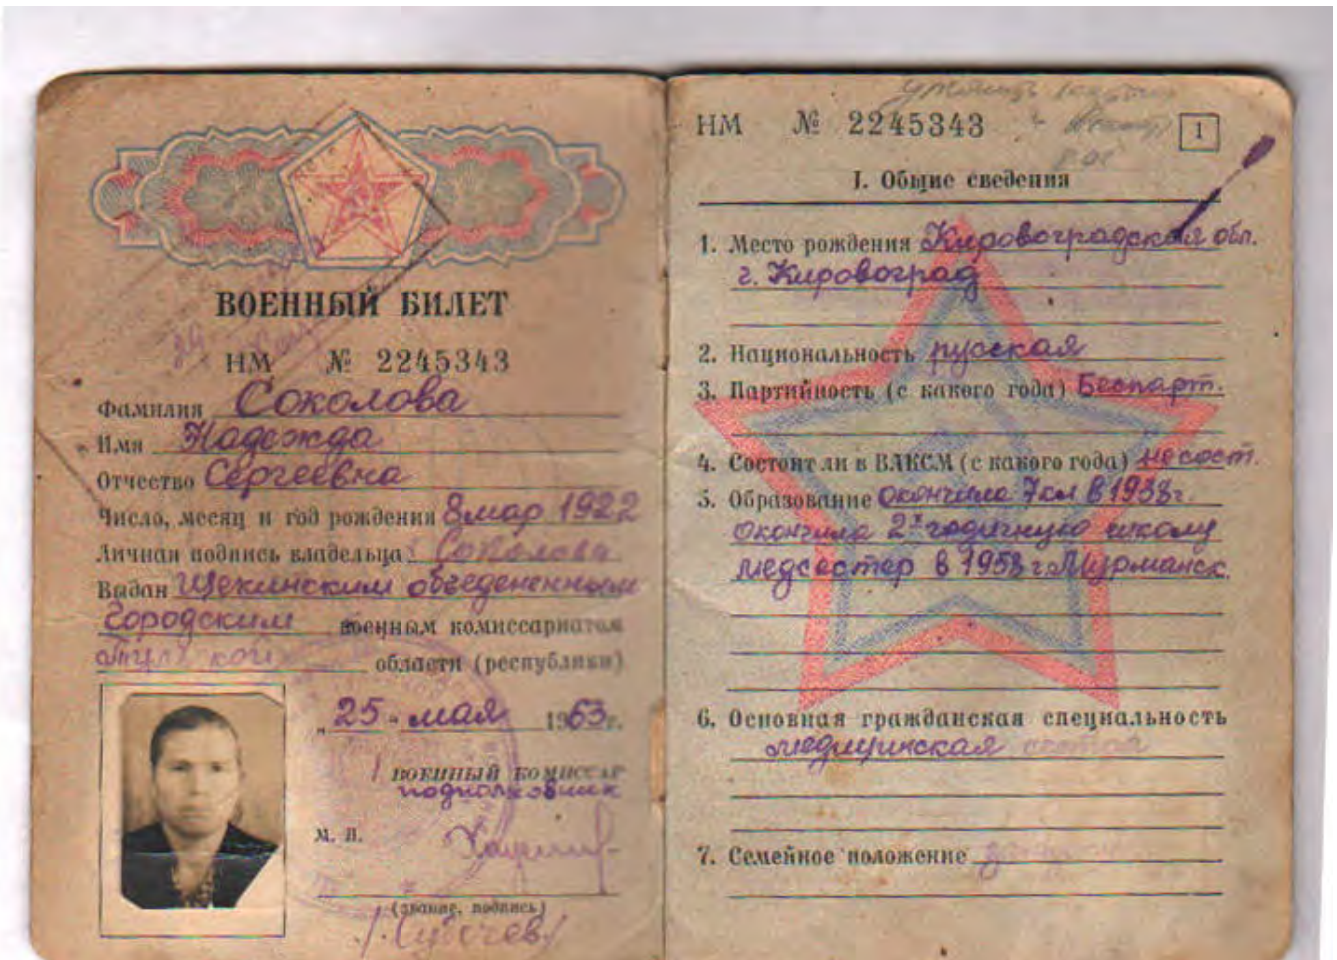 ВОЕННЫЙ БИЛЕТ
НМ № 2245343
Фамилия Соколова
Имя Надежда
Отчество Сергеевна
Число, месяц и год рождения 8 мар 1922
Личная подпись владельца Соколова
Выдан Щекинским объедененным
городским военным комиссариатом
Тульской области (республики)
„25" мая 1963 г.
военный комиссар
подполковник
М. П.
(звание, подпись)
НМ № 2245343
1
I. Общие сведения
1. Место рождения Кировоградская обл.
г. Кировоград
2. Национальность русская
3. Партийность (с какого года) Беспарт.
4. Состоит ли в ВЛКСМ (с какого года) не сост.
5. Образование окончила 7 кл в 1938г.
окончила 2х годичную школу
медсестер в 1953 г. Мурманск.
6. Основная гражданская специальность
медицинская сестра
7. Семейное положение